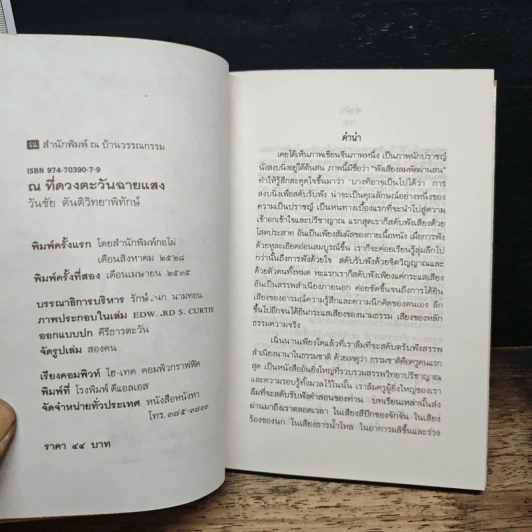 ณ สำนักพิมพ์ ณ บ้านวรรณกรรม
ISBN 974-70390-7-9
ณ ที่ดวงตะวันฉายแสง
วันชัย ตันติวิทยาพิทักษ์
พิมพ์ครั้งแรก โดยสำนักพิมพ์กอไผ่
เดือนสิงหาคม ๒๕๒๘
พิมพ์ครั้งที่สอง เดือนเมษายน ๒๕๓๕
บรรณาธิการบริหาร รักษ์ นามทอน
ภาพประกอบในเล่ม EDW .RD S. CURTIS
ออกแบบปก คีรีธารตะวัน
จัดรูปเล่ม สองคน
เรียงคอมพิวท์ ไฮ-เทค คอมพิวกราฟฟิค
พิมพ์ที่ โรงพิมพ์ ดีแอลเอส
จัดจำหน่ายทั่วประเทศ หนังสือหนังหา
โทร. ๓๗๕-๓๘๓๓
ราคา ๔๔ บาท
คำนำ
เคยได้เห็นภาพเขียนจีนภาพหนึ่ง เป็นภาพนักปราชญ์
นั่งสงบนิ่งอยู่ใต้ต้นสน ภาพนี้มีชื่อว่า “ฟังเสียงลมพัดผ่านสน”
ทำให้รู้สึกสะดุดใจขึ้นมาว่า บางทีอาจเป็นไปได้ว่า การ
สงบนิ่งเพื่อสดับรับฟัง น่าจะเป็นคุณลักษณ์อย่างหนึ่งของ
ความเป็นปราชญ์ เป็นหนทางเบื้องแรกที่จะนำไปสู่ความ
เข้าอกเข้าใจและปรีชาญาณ แรกสุดเราก็สดับฟังเสียงด้วย
โสตประสาท อันเป็นเพียงสัมผัสของกายเนื้อหนัง เมื่อการฟัง
ด้วยหูละเอียดอ่อนสมบูรณ์ขึ้น เราก็จะค่อยเรียนรู้ลุ่มลึกไป
กว่านั้นถึงการฟังด้วยใจ สดับรับฟังด้วยจิตวิญญาณและ
ด้วยตัวตนทั้งหมด ทะแรกเราก็สดับฟังเพียงแค่กระแสเสียง
อันเป็นสรรพสำเนียงภายนอก ค่อยชัดขึ้นจนถึงการได้ยิน
เสียงของอารมณ์ความรู้สึกและความนึกคิดของคนเอง ลึก
ขึ้นไปอีกจนได้ยินกระแสเสียงของนามธรรม เสียงของหลัก
ธรรมความจริง
เนิ่นนานเพียงใดแล้วที่เราลืมที่จะสดับตรับฟังสรรพ
สำเนียงนานาในธรรมชาติ ด้วยเหตุว่า ธรรมชาติคือครูคนแรก
สุด เป็นหนังสืออันยิ่งใหญ่ที่รวบรวมสรรพวิทยาปรีชาญาณ
และความรอบรู้ทั้งมวลไว้ในนั้น เราลืมครูผู้ยิ่งใหญ่ของเรา
ลืมที่จะสดับรับฟังคำสอนของท่าน บทเรียนเหล่านั้นส่ง
ผ่านมาถึงเราตลอดเวลา ในเสียงสีปีกของจักจั่น ในเสียง
ร้องของนก ในเสียงธารน้ำไหล ในอาการผลิขึ้นและร่วง